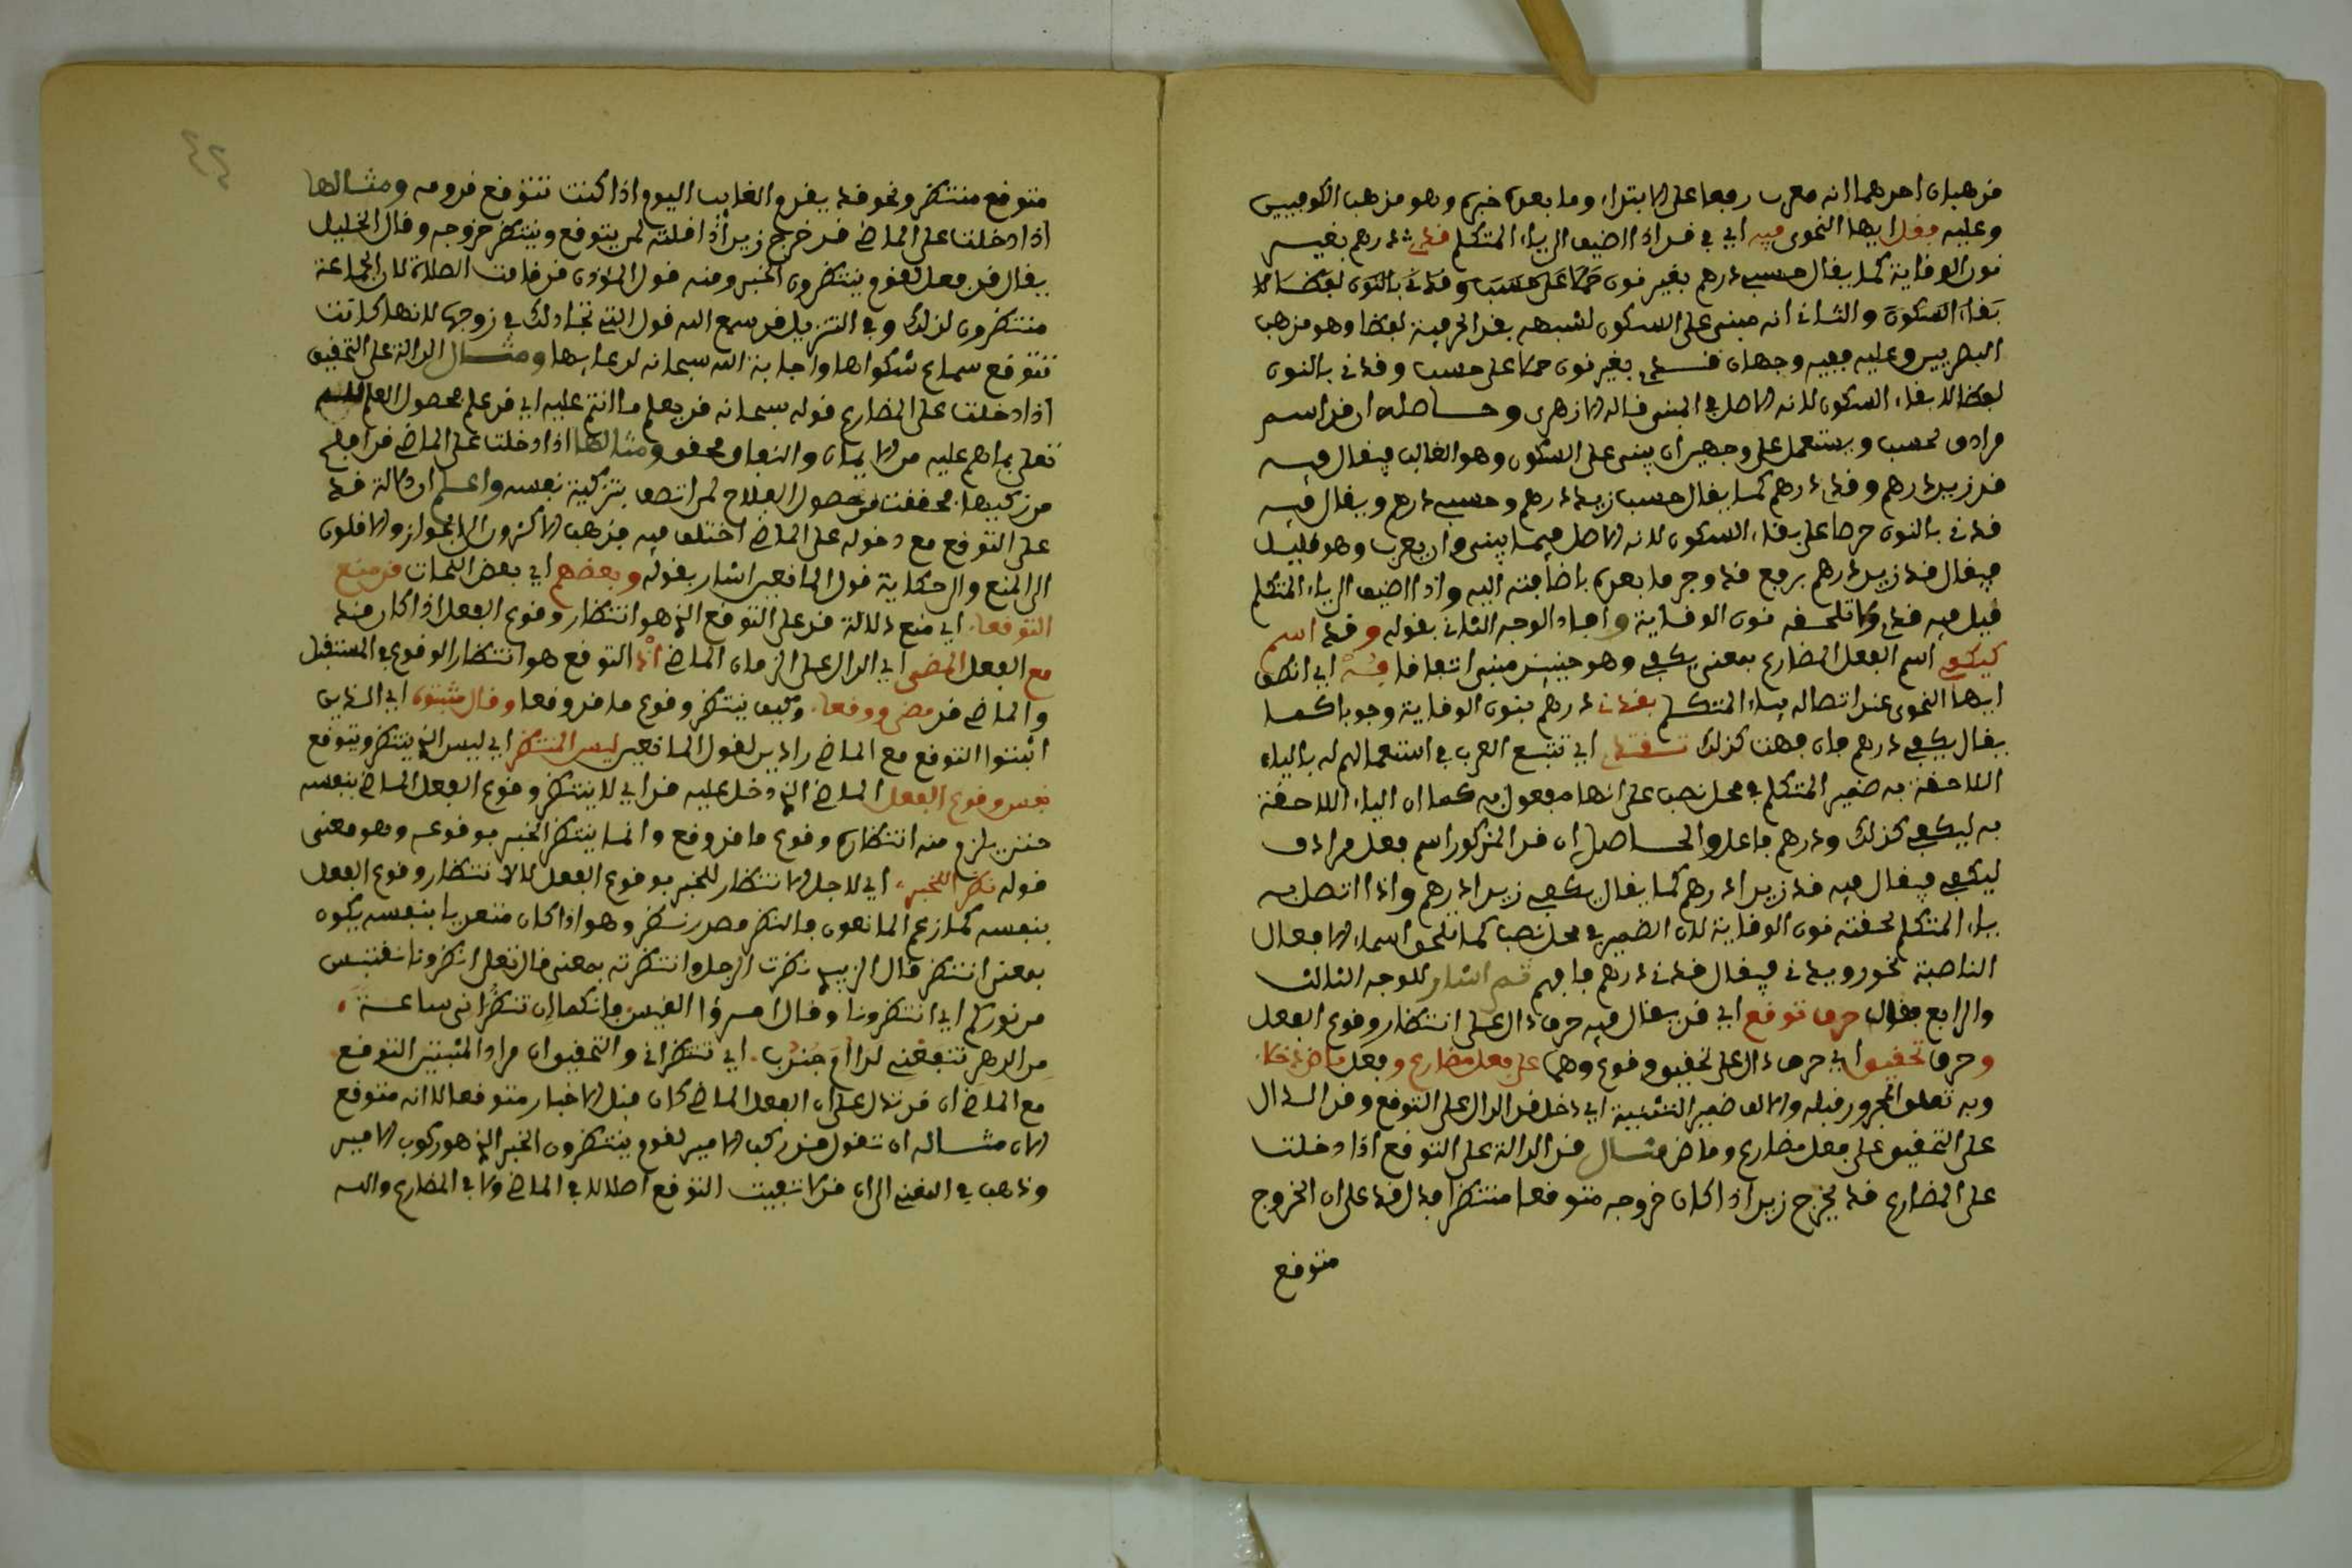 مذهبان احدهما انه معرب رفعا على الابتداء وما بعده خبره وهو مذهب الكوفيين
وعليه فقل ايها النحوي فيه اي في قد اذا اضيف الى ياء المتكلم قدي درهم بغير
نون الوقاية كما يقال حسبي درهم بغير نون حملا على حسب وقدني بالنون لفظا لا
بقاء السكون والثاني انه مبني على السكون لشبهه بقد الحرفية لفظا وهو مذهب
البصريين وعليه ففيه وجهان قدي بغير نون حملا على حسب وقدني بالنون
لفظا لابقاء السكون لانه الاصل في المبني قاله الازهري وحاصله ان قد اسم
مرادف لحسب ويستعمل على وجهين ان يبنى على السكون وهو الغالب فيقال فيه
قد زيد درهم وقدي درهم كما يقال حسب زيد درهم وحسبي درهم ويقال فيه
قدني بالنون حرصا على بقاء السكون لانه الاصل فيما يبنى وان يعرب وهو قليل
فيقال قد زيد درهم برفع قد وجر ما بعده باضافته اليه واذا اضيف الى ياء المتكلم
قيل فيه قدي ولا تلحقه نون الوقاية وافاد الوجه الثاني بقوله وقد اسم
كيكفي اسم الفعل المضارع بمعنى يكفي وهو حينئذ مبني اتفاقا فِهْ اي انطق
ايها النحوي عند اتصاله بياء المتكلم بقدني درهم بنون الوقاية وجوبا كما
يقال يكفيني درهم فان فهت كذلك تقتدي اي تتبع العرب في استعمالهم له بالياء
اللاحقة به ضمير المتكلم في محل نصب على انها مفعول به كما ان الياء اللاحقة
به ليكفي كذلك ودرهم فاعل والحاصل ان قد المذكور اسم فعل مرادف
ليكفي فيقال فيه قد زيدا درهم كما يقال يكفي زيدا درهم واذا اتصل به
ياء المتكلم لحقته نون الوقاية لان الضمير في محل نصب كما تلحق اسماء الافعال
الناصبة نحو رويدني فيقال قدني درهم فافهم ثم اشار للوجه الثالث
والرابع فقال حرف توقع اي قد يقال فيه حرف دال على انتظار وقوع الفعل
وحرف تحقيق اي حرف دال على تحقيق وقوع وهما على فعل مضارع وفعل ماض دخلا
وبه تعلق المجرور قبله والالف ضمير التثنية اي دخل قد الدال على التوقع وقد الدال
على التحقيق على فعل مضارع وماض مثال قد الدالة على التوقع اذا دخلت
على المضارع قد يخرج زيد اذا كان خروجه متوقعا منتظرا فدل قد على ان الخروج
متوقع
متوقع منتظر ونحو قد يقدم الغايب اليوم اذا كنت تتوقع قدومه ومثالها
اذا دخلت على الماضي قد خرج زيد اذا قلته لمن يتوقع وينتظر خروجه وقال الخليل
يقال قد فعل لقوم ينتظرون الخبر ومنه قول المؤذن قد قامت الصلاة لان الجماعة
منتظرون لذلك وفي التنزيل قد سمع الله قول التي تجادلك في زوجها لانها كانت
تتوقع سماع شكواها واجابة الله سبحانه لدعايها ومثال الدالة على التحقيق
اذا دخلت على المضارع قوله سبحانه قد يعلم ما انتم عليه اي قد علم فحصول العلم لله
تعلى بما هم عليه من الايمان والنفاق محقق ومثالها اذا دخلت على الماضي قد افلح
من زكيها فحققت حصول الفلاح لمن اتصف بتزكية نفسه واعلم ان دلالة قد
على التوقع مع دخوله على الماضي اختلف فيه فذهب الاكثرون الى الجواز والاقلون
الى المنع والى حكاية قول المانعين اشار بقوله وبعضهم اي بعض النحات قد منع
التوقعا اي منع دلالة قد على التوقع الذي هو انتظار وقوع الفعل اذا كان قد
مع الفعل المضي اي الدال على الزمان الماضي اذ التوقع هو انتظار الوقوع في المستقبل
والماضي قد مضى ووقعا وكيف ينتظر وقوع ما قد وقعا وقال مثبتوه اي الذين
اثبتوا التوقع مع الماضي رادين لقول المانعين ليس المنتظر اي ليس الذي ينتظر ويتوقع
نفس وقوع الفعل الماضي الذي دخل عليه قد اي لا ينتظر وقوع الفعل الماضي بنفسه
حتى يلزم منه انتظار وقوع ما قد وقع وانما ينتظر الخبر بوقوعه وهو معنى
قوله نظر اللخبر اي لاجل الانتظار للخبر بوقوع الفعل لا لانتظار وقوع الفعل
بنفسه كما زعم المانعون فالنظر مصدر نظر وهو اذا كان متعديا بنفسه يكون
بمعنى انتظر قال الزبيدي نظرت الرجل وانتظرته بمعنى قال تعلى انظرونا نقتبس
من نوركم اي انتظرونا وقال امرؤ القيس فانكما ان تنظراني ساعة
من الدهر تنفعني لدى ام جندب اي تنتظراني والتحقيق ان مراد المثبتين التوقع
مع الماضي ان قد تدل على ان الفعل الماضي كان قبل الاخبار متوقعا لا انه متوقع
الان مثاله ان تقول قد ركب الامير لقوم ينتظرون الخبر الذي هو ركوب الامير
وذهب في المغني الى ان قد لا تفيد التوقع اصلا لا في الماضي ولا في المضارع والله